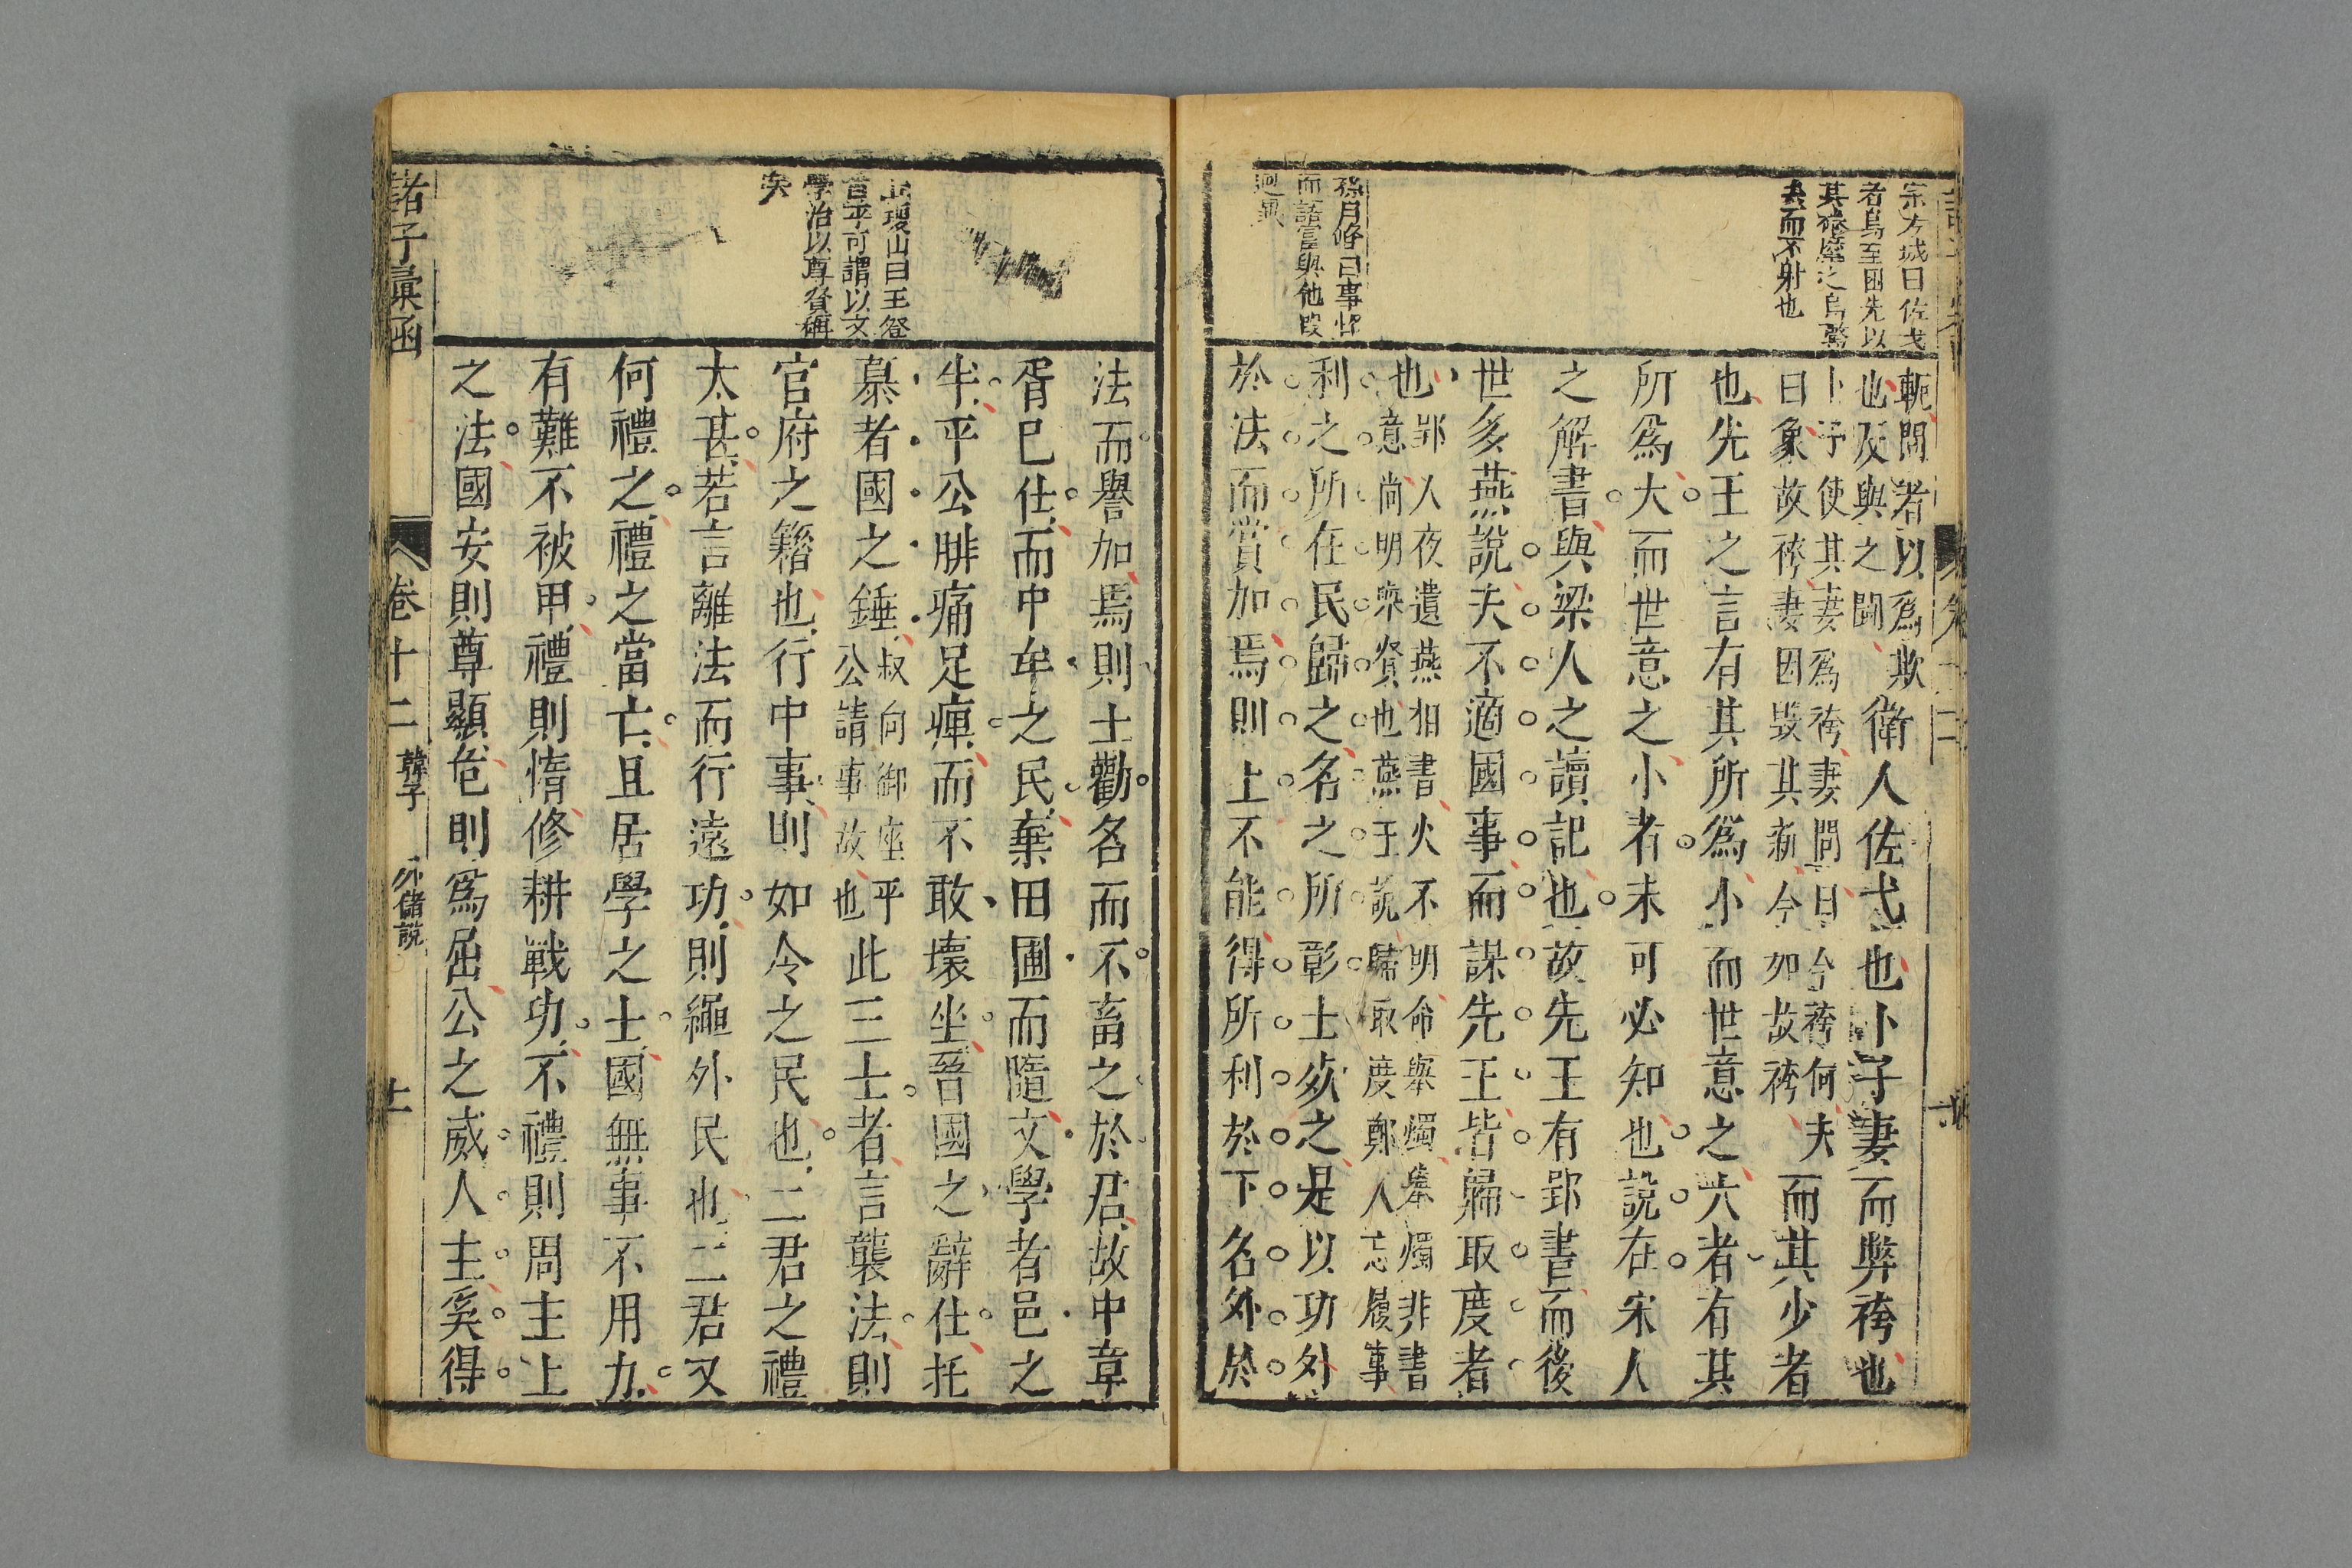 宗方城曰佐弋
者鳥至因先以
其䙅麾之鳥驚
去而不射也
孫月峰曰事
而語意與他段
迥異
軛問者以爲欺
也反與之鬪
衛人佐弋也卜子妻而弊袴也
卜子使其妻爲袴妻問曰今袴何夫
曰象故袴妻因毀其新令如故袴
而其少者
也先王之言有其所爲小而世意之大者有其
所爲大而世意之小者未可必知也說在宋人
之解書與梁人之讀記也故先王有郢書而後
世多燕說夫不適國事而謀先王皆歸取度者
也
郢人夜遺燕相書火不明命舉燭舉燭非書
意尚明舉賢也燕王說歸取度鄭人忘履事
利之所在民歸之名之所彰士死之是以功外
於法而賞加焉則上不能得所利於下名外於
丘瓊山曰王登
首乎可謂以文
學治以尊賢稱
矣
法而譽加焉則士勸名而不畜之於君故中章
胥巳仕而中牟之民棄田圃而隨文學者邑之
半平公腓痛足痺而不敢壞坐晉國之辭仕托
慕者國之錘
叔向御座平
公請事故也
此三士者言襲法則
官府之籍也行中事則如令之民也二君之禮
太甚若言離法而行遠功則繩外民也二君又
何禮之禮之當亡且居學之士國無事不用力
有難不被甲禮則惰修耕戰功不禮則周主上
之法國安則尊顯危則爲屈公之威人主奚得
諸子彙函
卷十二
韓子
外儲說
十一